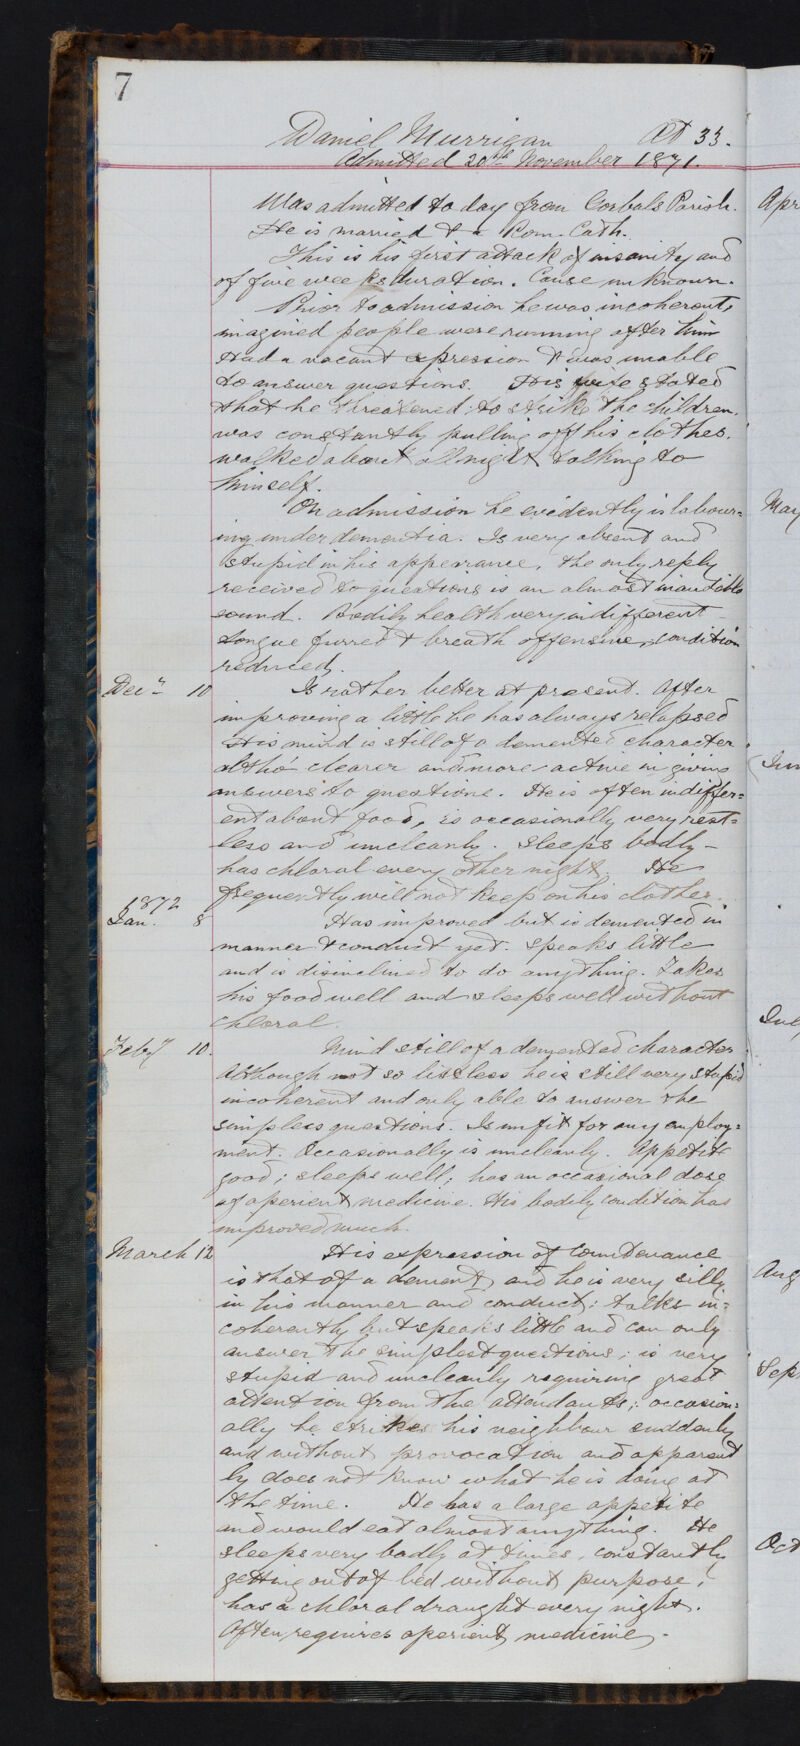 7
Daniel Murrigan Æt 33.
Admitted 20th November 1871.
Was admitted to day from Gorbals Parish. Apr
He is married & a Rom. Cath.
This is his first attack of insanity and
of five weeks duration. Cause unknown.
Prior to admission he was incoherent,
imagined people were running after him
Had a vacant expression & was unable
to answer questions. His wife stated
that he threatened to strike the children.
was constantly pulling off his clothes.
walked about all night talking to
himself.
On admission he evidently is labour= May
ing under dementia. Is very absent and
stupid in his appearance, the only reply
received to questions is an almost inaudible
sound. Bodily health very indifferent
tongue furred & breath offensive, condition
reduced.
Decr 10 Is rather better at present. After
improving a little he has always relapsed
His mind is still of a demented character
altho' clearer and more active in giving
answers to questions. He is often indiffer=
ent about food, is occasionally very rest=
less and uncleanly. Sleeps badly –
has chloral every other night. He
frequently will not keep on his clothes.
1872
Jan. 8 Has improved but is demented in
manner & conduct yet. Speaks little
and is disinclined to do anything. Takes
his food well and sleeps well without
chloral.
Feby 10. Mind still of a demented character
Although not so listless he is still very stupid
incoherent and only able to answer the
simplest questions. Is unfit for any employ=
ment. Occasionally is uncleanly. Appetite
good; sleeps well; has an occasional dose
of aperient medicine. His bodily condition has
improved much.
March 12 His expression of countenance
is that of a dement, and he is very silly Aug
in his manner and conduct: talks in=
coherently but speaks little and can only
answer the simplest questions; is very
stupid and uncleanly requiring great Sep
attention from the attendants; occasion=
ally he strikes his neighbour suddenly
and without provocation and apparent
ly does not know what he is doing at
the time. He has a large appetite
and would eat almost anything. He
sleeps very badly at times, constantly Oct
getting out of bed without purpose,
has a chloral draught every night.
Often requires aperient medicine.